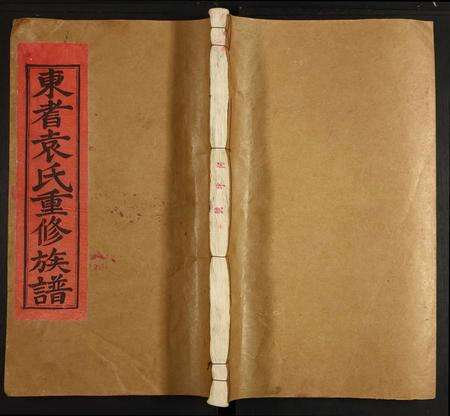 東耆袁氏重修族譜